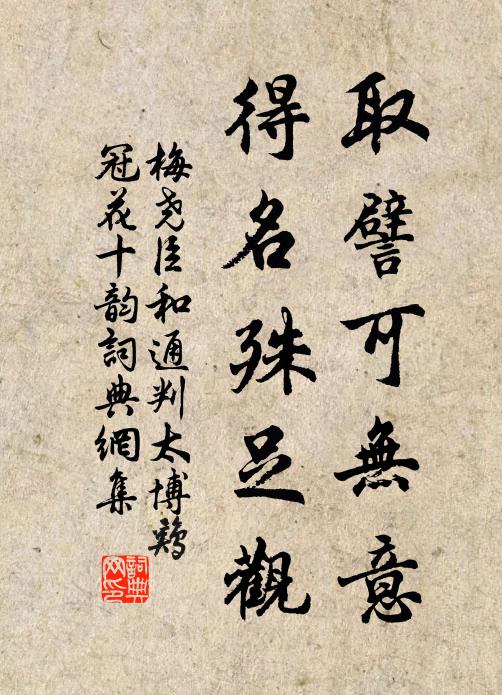 取譬可無意
得名殊足觀
梅尧臣和通判太博鶏
冠花十韵詞典網集
詞典網印